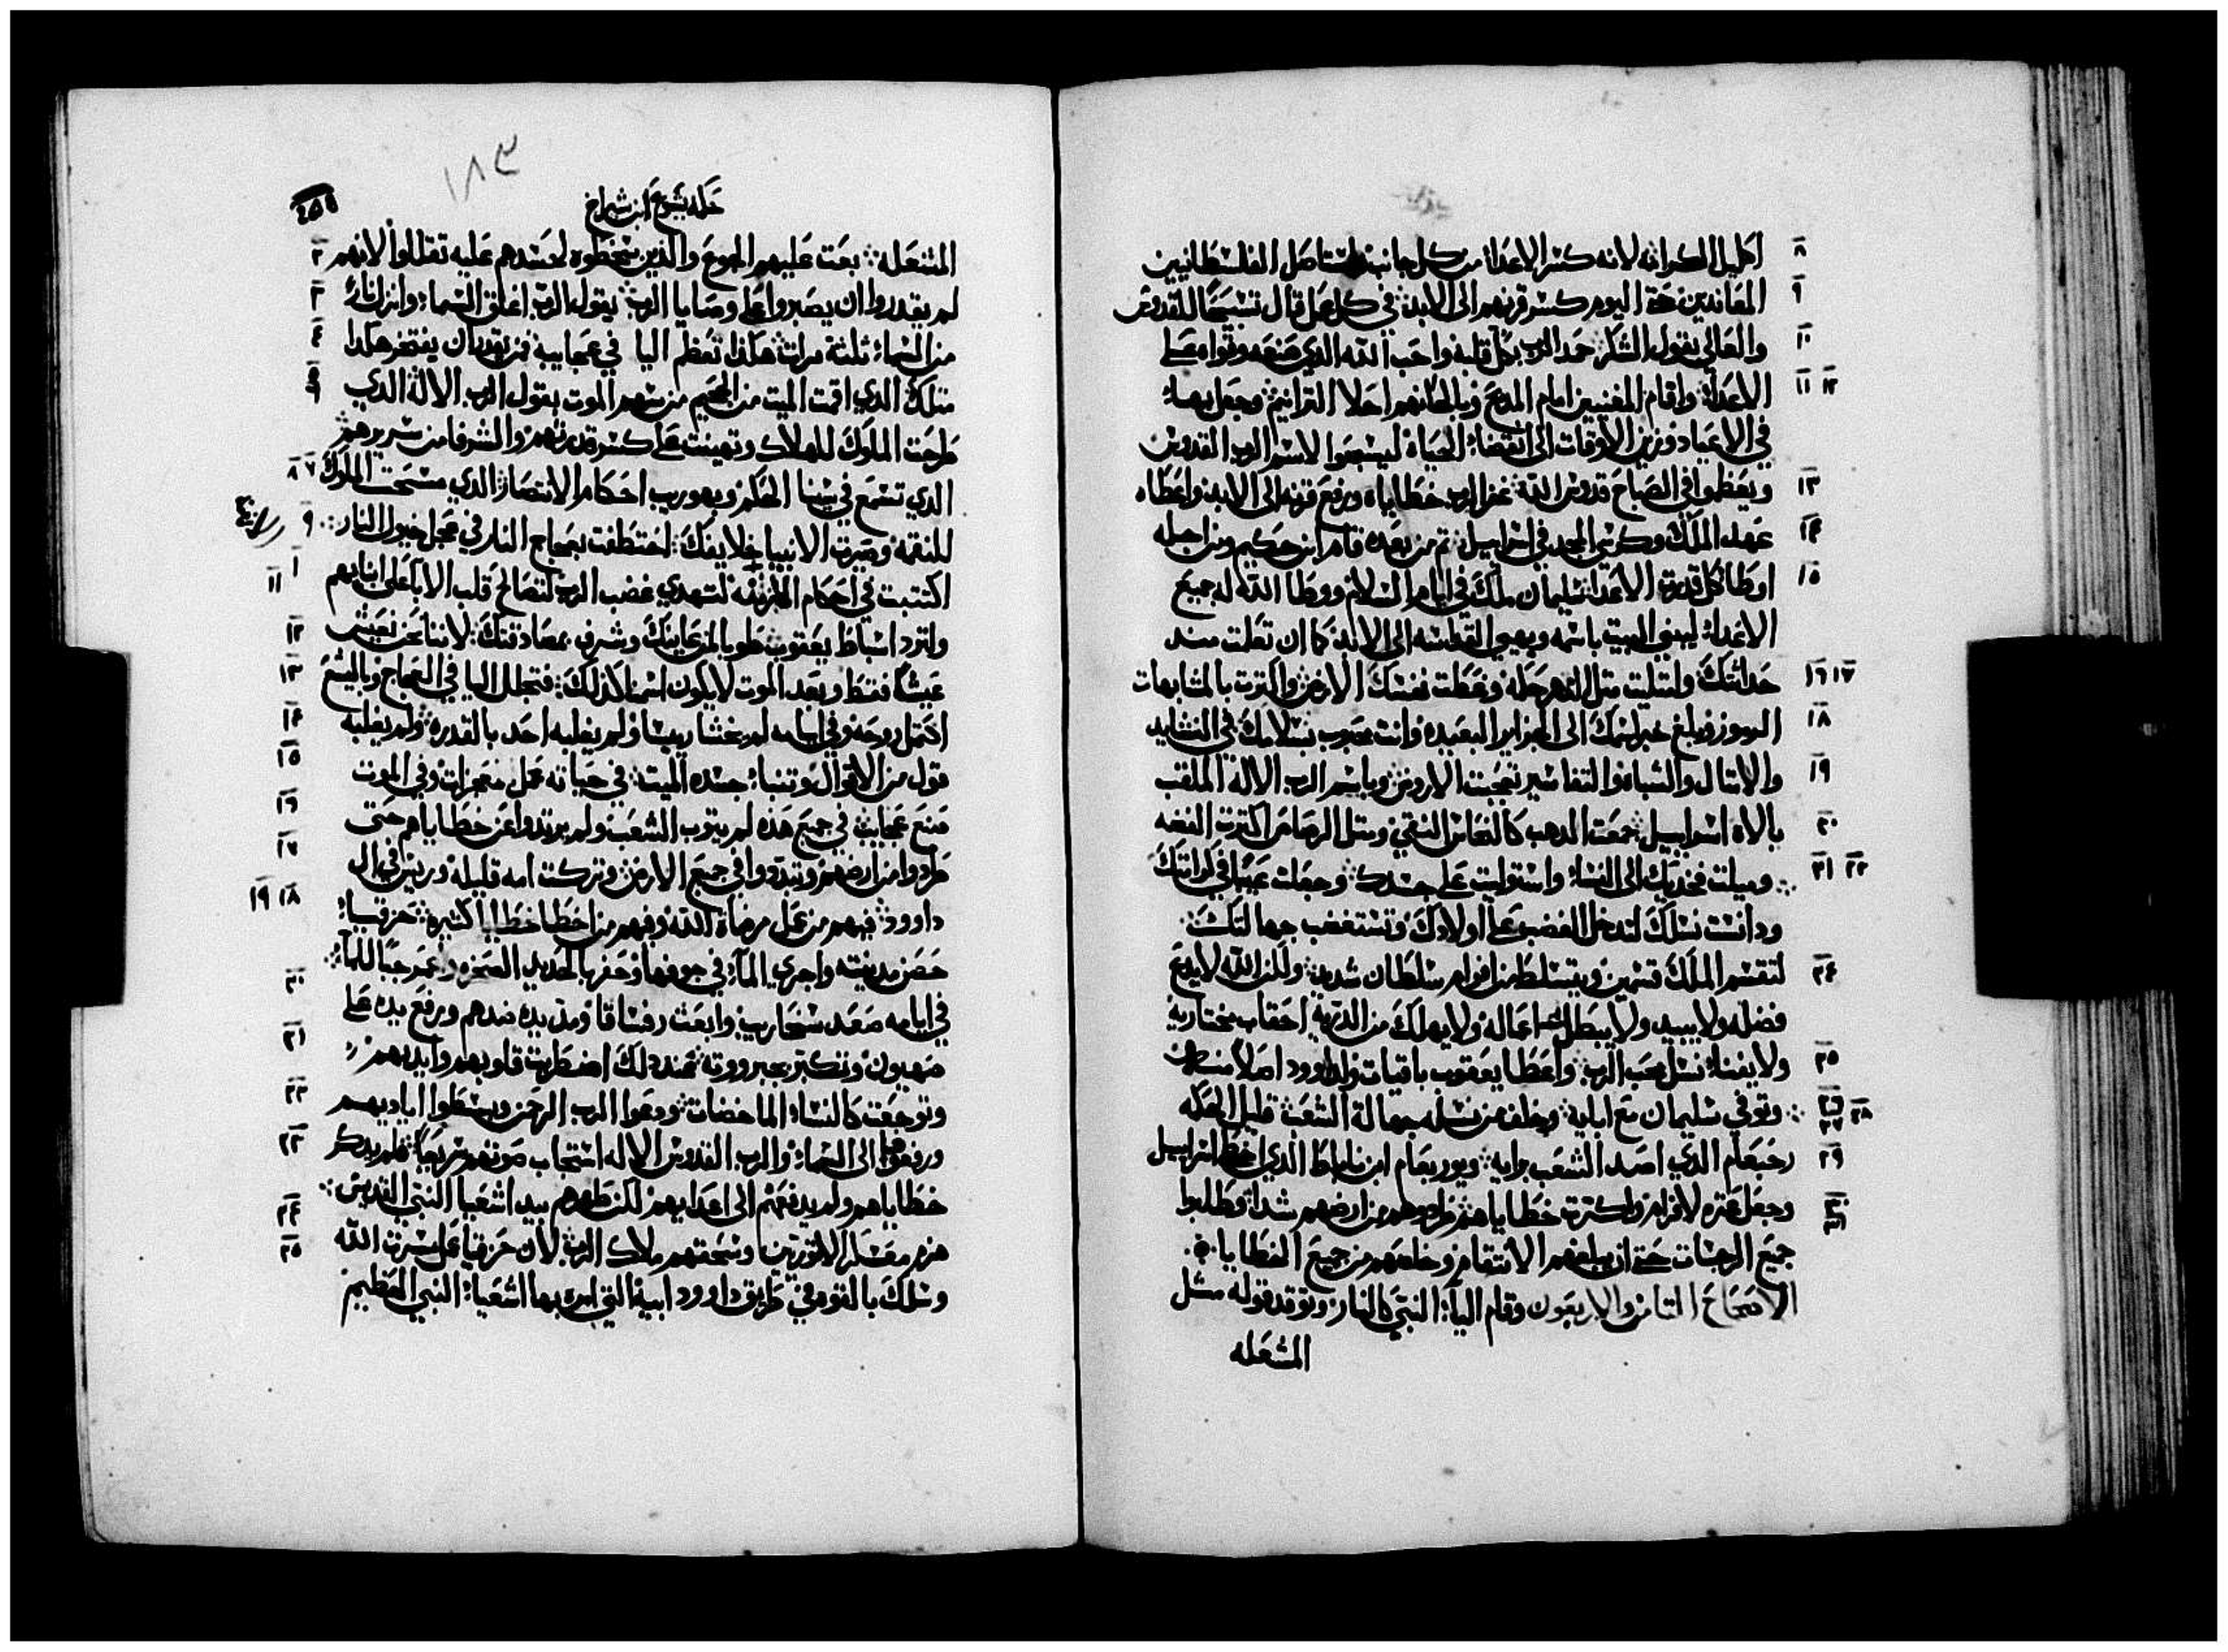 ٨ اكليل الكرامه لانه كسر الاعدا من كل جانب واستاصل الفلسطانيين
٩ المعاندين حتى اليوم كسر قرنهم الى الابد في كل عمل قال تسبيحا للقدوس
١٠ والعالي بقول الشكر حمد الرب بكل قلبه واحب الله الذي صنعه وقواه على
١١ ١٢ الاعدا واقام المغنيين امام المدبح وبالحانهم احلا الترانيم وجعل بهاء
في الاعياد وزين الاوقات الى انقضاء الحياة ليسبحوا لاسم الرب القدوس
١٣ ويعظموا في الصباح قدوس الله غفر الرب خطاياه ورفع قرنه الى الابد واعطاه
١٤ عهد الملك وكرسي المجد في اسراييل ثم من بعده قام ابن حكيم ومن اجله
١٥ اوطا كل قدرة الاعدا سليمان ملك في ايام السلام ووطا الله له جميع
الاعداء ليبني البيت باسمه ويهيي القدس الى الابد كما ان تعلمت مند
١٦ ١٧ حداثتك وامتليت متل النهر حكمه وغطت نفسك الارض واكترت بالمتشابهات
١٨ الرموز وبلغ خبر اسمك الى الجزاير البعيده وانت محبوب بسلامك في النشايد
١٩ والامتال والشباه والتفاسير تعجبت الارض وباسم الرب الاله الملقب
٢٠ بالاه اسراييل جمعت الدهب كالنحاس النقي ومتل الرصاص اكترت الفضه
٢١ ٢٢ وميلت فخديك الى النساء واستوليت على جسدك وجعلت عيبا في كرامتك
ودنست نسلك لتدخل الغضب على اولادك وتستغضب جهالتك
٢٤ لتقسم الملك قسمين ويتسلط من افرام سلطان شديد ولكن الله لا يدع
فضله ولا يبيد ولا يبطل اعماله ولا يهلك من الدريه احقاب مختاريه
٢٥ ولا يفناء نسل محب الرب واعطا يعقوب باقيات ولداوود اصلا منه
٢٦ ٢٧ ٢٨ وتوفي سليمان مع ابايه وخلف من نسله جهالة الشعب قليل الحكمه
٢٩ رحبعام الذي اصد الشعب برايه ويوربعام ابن ناباط الذي اخطا اسراييل
٣٠ ٣١ وجعل عتره لافرام واكترت خطاياهم طردوهم من ارضهم شدا وطلبوا
جميع الرجسات حتى ان بلغهم الانتقام وخلصهم من جميع الخطايا
الاصحاح التامن والاربعون وقام اليا النبي كالنار وتوقد قوله مشل
المشعله
١٨٣
حكمة يشوع ابن شيراخ
٢ المشعله بعت عليهم الجوع والذين سخطوه لحسدهم عليه تقللوا لانهم
٣ لم يقدروا ان يصبروا على وصايا الرب بقول الرب اغلق السماء وانزل نار
٤ من السماء ثلثة مرات هكذا تعظم اليا في عجايبه فمن يقدر ان يفتخر هكدا
٥ ٦ متلك الدي اقمت الميت من الجحيم من سهم الموت بقول الرب الاله الدي
طرحت الملوك للهلاك وتهينت على كسر قدرتهم والشرفا من سريرهم
٧ ٨ الدي تسمع في سينا الحكم وبحوريب احكام الانتصار الدي مسحت الملوك
٩ للنقمه وصيرت الانبيا خلايفك اختطفت بعجاج النار في عجل خيول النار
١٠ ١١ اكتتبت في احكام الازمنه لتهدي غضب الرب لتصالح قلب الاباء على ابنايهم
١٢ ولترد اسباط يعقوب طوبا لمن عاينك وشرف بمصادقتك لاننا نحن نعيش
١٣ عيشا فقط وبعد الموت لا يكون اسمنا كذلك فتجلل اليا في العجاج وباليشع
١٤ اكتمل روحه وفي ايامه لم يخشا رييسا ولم يغلبه احد بالقدره ولم يغلبه
١٥ قول من الاقوال وتنباء جسده الميت في حياته عمل معجزات وفي الموت
١٦ صنع عجايب في جميع هذه لم يتوب الشعب ولم يرتدوا عن خطاياهم حتى
١٧ طردوا من ارضهم وتبددوا في جميع الارض وتركت امه قليله وريس في ال
١٨ ١٩ داوود فمنهم من عمل مرضاة الله ومنهم من اخطا خطايا كثيره حزقيا
حصن مدينته واجري الماء في جوفها وحفر بالحديد الصخره وعمر جبا للماء
٢٠ في ايامه صعد سنحاريب وابعت رفساقا ومد يده ضدهم ورفع يده على
٢١ صهيون وتكبر بجبرووته عند دلك اضطربت قلوبهم وايديهم
٢٢ وتوجعت كالنساء الماخضات ودعوا الرب الرحمن وبسطوا اياديهم
٢٣ ورفعوها الى السماء والرب القدوس الاله استجاب صوتهم سريعا فلم يدكر
خطاياهم ولم يدفعهم الى اعدايهم لكن طهرهم بيد اشعيا النبي القديس
٢٤ هزم معسكر الاتوريين وسحقهم ملاك الرب لان حزقيا عمل مسرة الله
٢٥ وسلك بالقوه في طريق داوود ابيه التي امره بها اشعياء النبي العظيم